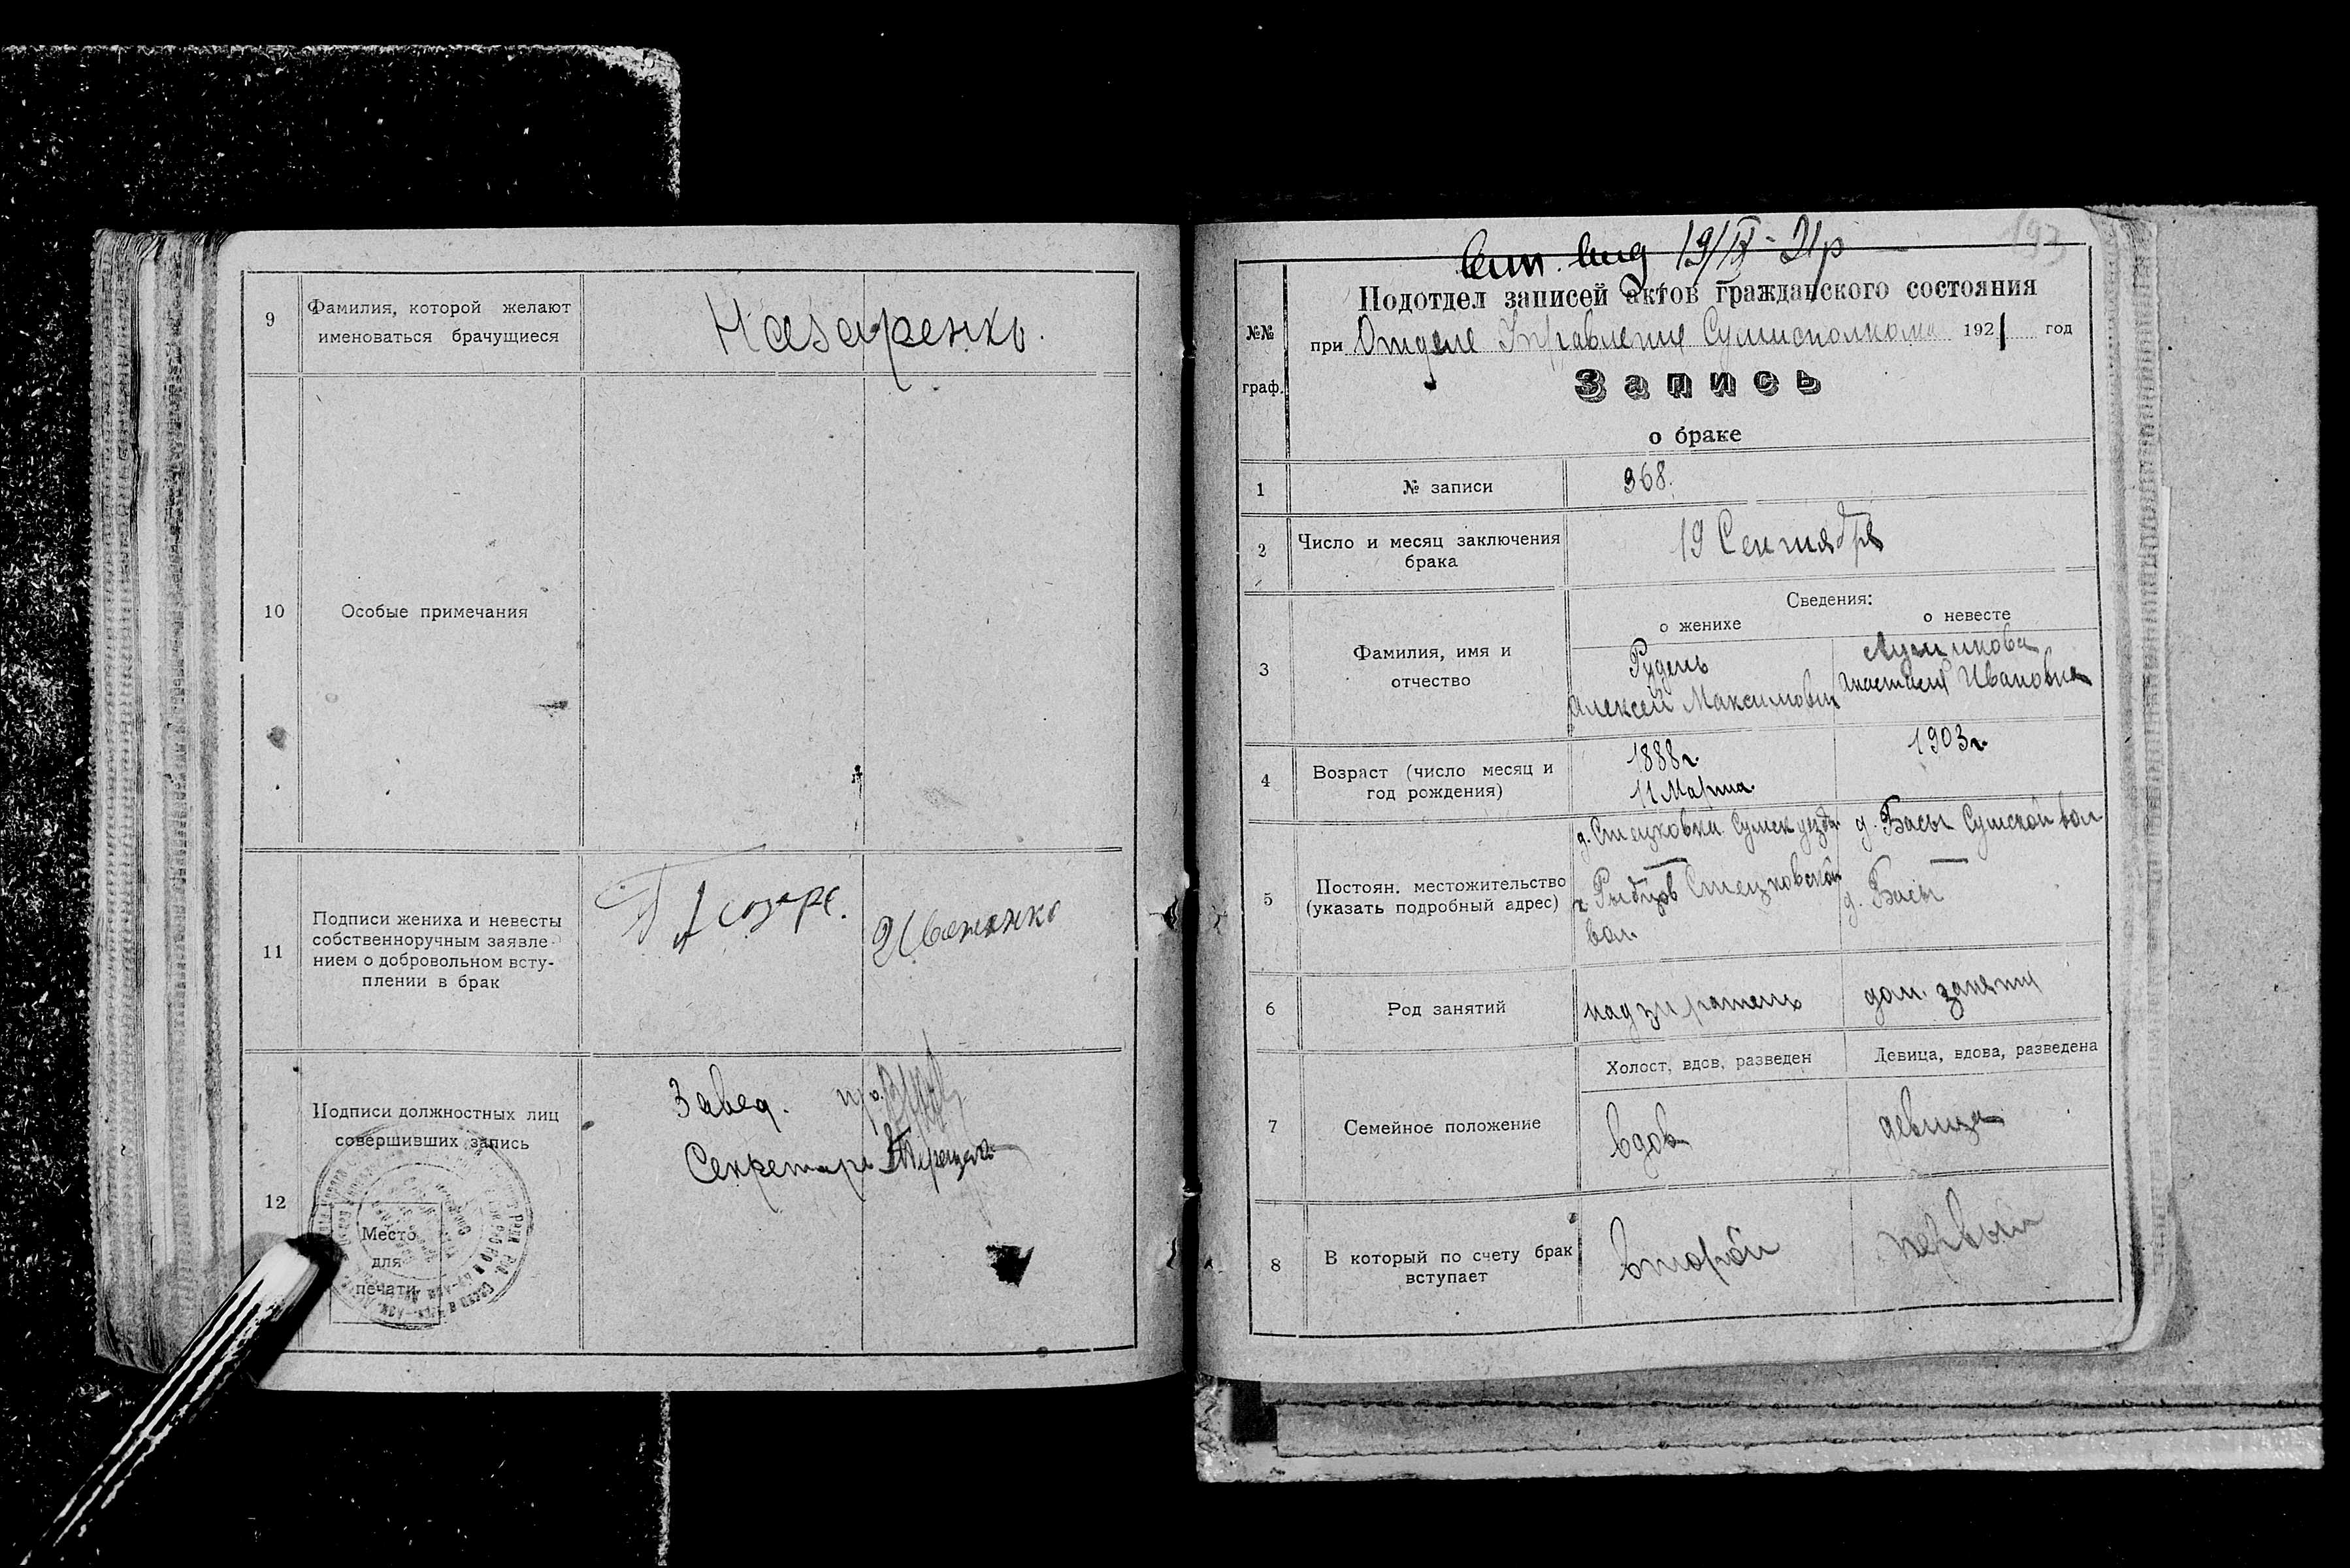 9
Фамилия, которой желают
именоваться брачущиеся
Назаренко.
10
Особые примечания
11
Подписи жениха и невесты
собственноручным заявле-
нием о добровольном всту-
плении в брак
Иваненко
12
Подписи должностных лиц
совершивших запись
Завед.
Секретарь
Место
для
печати
193
19/IX-21р
Подотдел записей актов гражданского состояния
№№
граф.
при Отделе Управления Сумисполкома 1921 год
Запись
о браке
1
№ записи
368.
2
Число и месяц заключения
брака
19 Сентября
Сведения:
о женихе
о невесте
3
Фамилия, имя и
отчество
Рудень
Алексей Максимович
Анастасия Ивановна
4
Возраст (число месяц и
год рождения)
1888г.
11 Марта.
1903г.
5
Постоян. местожительство
(указать подробный адрес)
д. Стецковки Сумск уезда
х Рыбцов Стецковской
вол.
д. Басы Сумской вол
д. Басы
6
Род занятий
надзиратель
дом. занятия
7
Семейное положение
Холост, вдов, разведен
Девица, вдова, разведена
вдов
девица
8
В который по счету брак
вступает
второй
первый